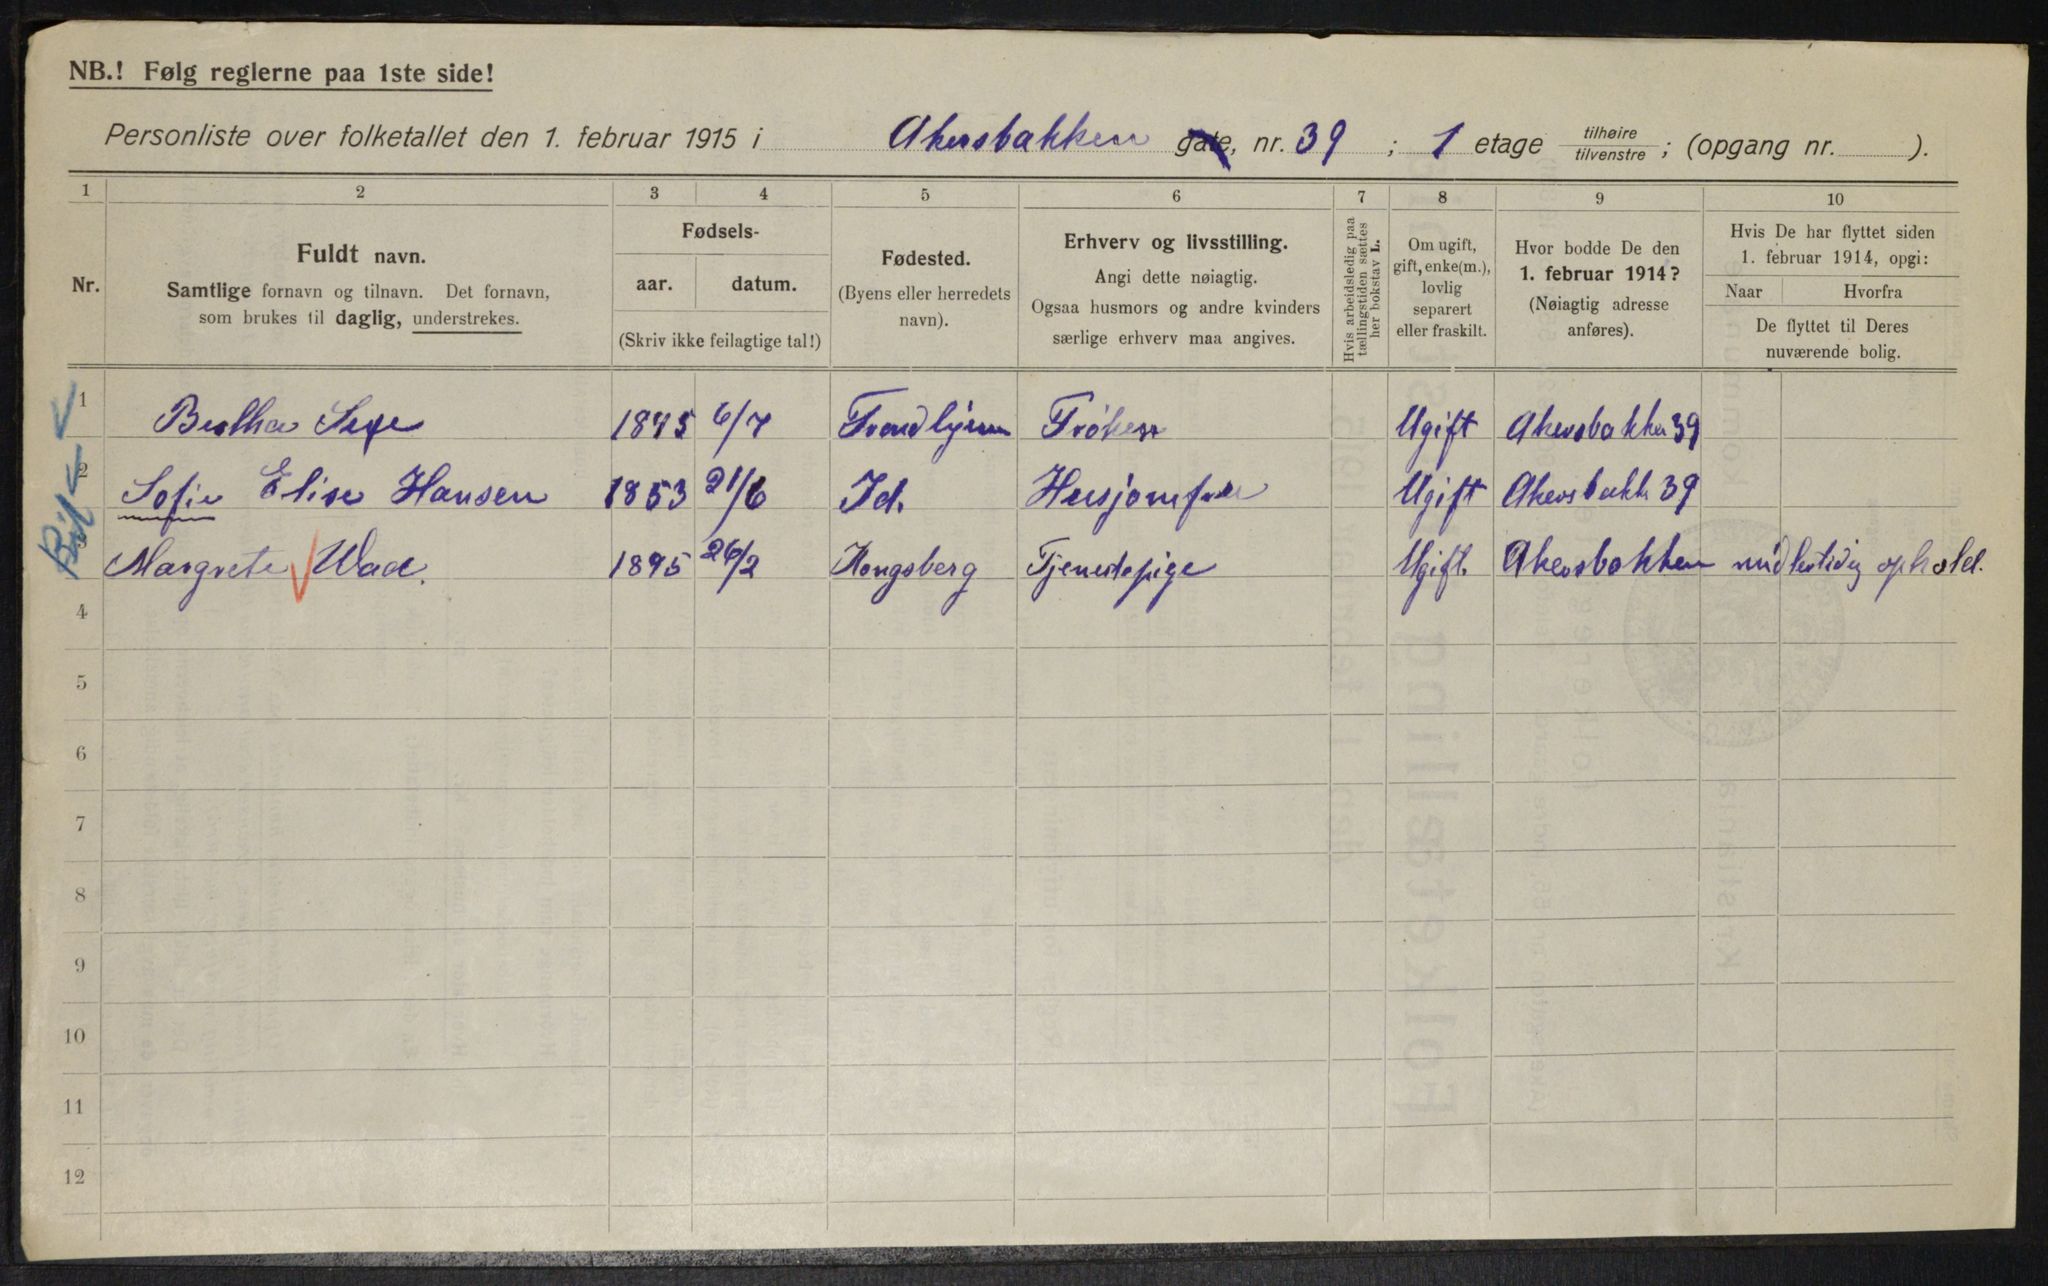 NB.! Følg reglerne paa 1ste side!
Personliste over folketallet den 1. februar 1915 i Akersbakken gate, nr. 39 ; 1 etage tilhøire tilvenstre ; (opgang nr. ).
1 2 3 4 5 6 7 8 9 10
Nr.
Fuldt navn.
Samtlige fornavn og tilnavn. Det fornavn,
som brukes til daglig, understrekes.
Fødsels-
aar. datum.
(Skriv ikke feilagtige tal!)
Fødested.
(Byens eller herredets
navn).
Erhverv og livsstilling.
Angi dette nøiagtig.
Ogsaa husmors og andre kvinders
særlige erhverv maa angives.
Hvis arbeidsledig paa
tællingstiden sættes
her bokstav L.
Om ugift,
gift, enke(m.),
lovlig
separert
eller fraskilt.
Hvor bodde De den
1. februar 1914?
(Nøiagtig adresse
anføres).
Hvis De har flyttet siden
1. februar 1914, opgi:
Naar Hvorfra
De flyttet til Deres
nuværende bolig.
1 Berthe Sexe 1845 6/7 Trondhjem Frøken Ugift Akersbakken 39
2 Sofie Elise Hansen 1853 21/6 Id. Husjomfru Ugift Akersbakk 39
3 Margrete Wad. 1895 26/2 Kongsberg Tjenestepige Ugift. Akersbakken midlertidig ophold.
4
5
6
7
8
9
10
11
12